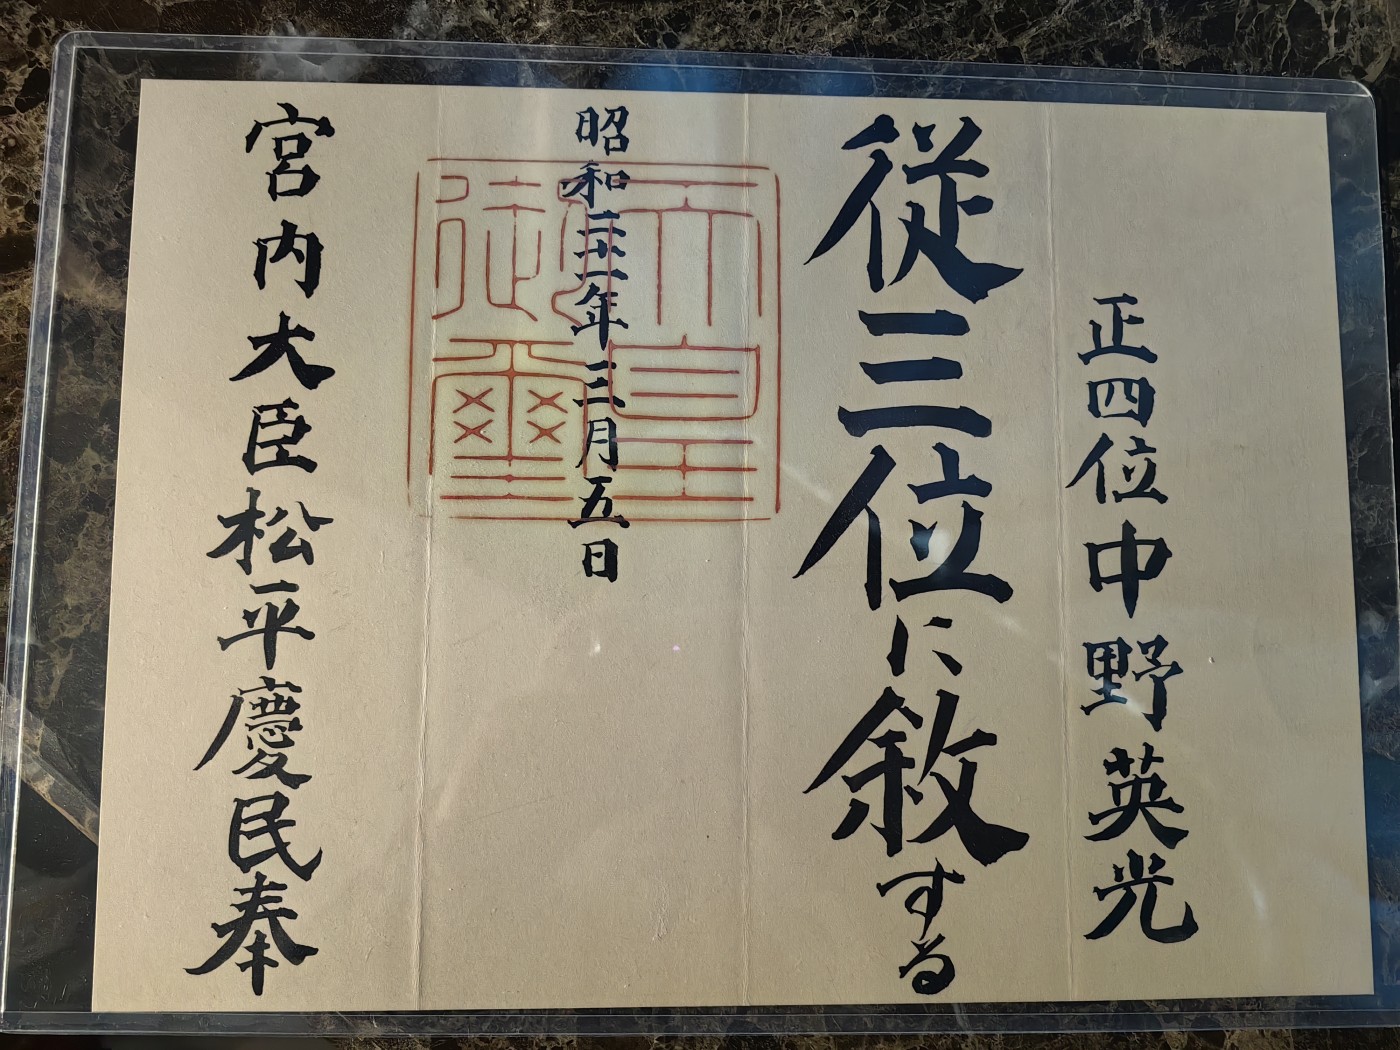 正四位中野英光
従三位に敘する
昭和二十一年三月五日
天皇
御璽
宮内大臣松平慶民奉